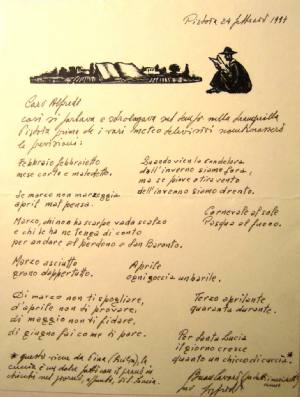 Pistoia 24 febbraio 1997
Caro Alfredo
così si parlava e strologava nel tempo nella tranquilla
Pistoia prima che i vari meteo televisivi
le previsioni:
Febbraio febbraietto
mese corto e maledetto.
Se marzo non marzeggia
april mal pensa.
Marzo, chi non ha scarpe vada scalzo
e chi le ha ne tenga di conto
per andare al perdono a San Baronto.
Marzo asciutto
grano dappertutto.
Di marzo non ti spogliare,
d'aprile non ti provare,
di maggio non ti fidare,
di giugno fai come ti pare.
Quando vien la candelora
dall'inverno siamo fora,
ma se piove o tira vento
dell'inverno siamo drento.
Carnevale al sole
Pasqua al fuoco.
Aprile
ogni goccia un barile.
Terzo aprilante
quaranta durante.
Per Santa Lucia
il giorno cresce
quanto un chicco di cuccìa *
* questo viene da
cuccìa è un dolce fatto con il grano